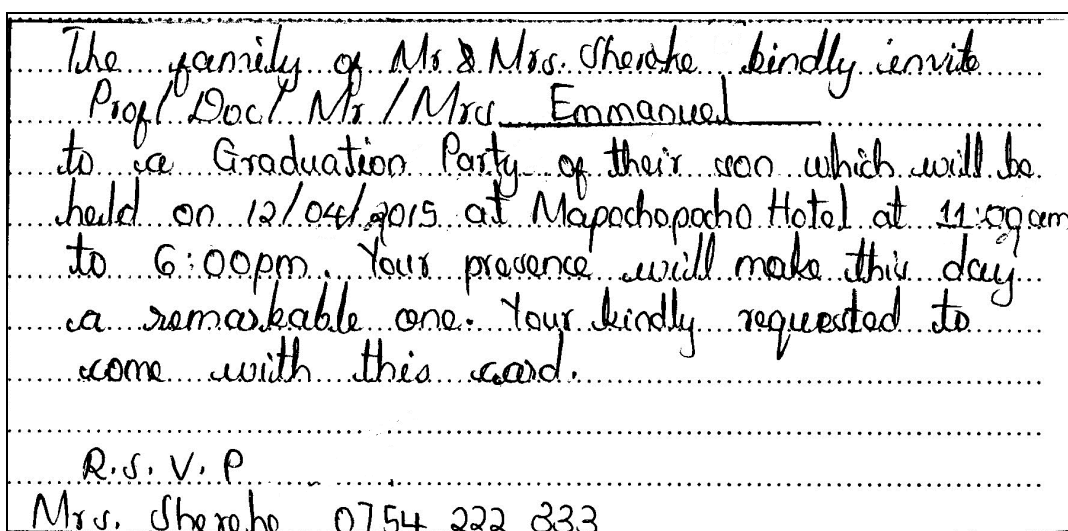 The family of Mr & Mrs. Sherehe kindly invite
Prof/ Doc/ Mr / Mrs Emmanuel
to a Graduation Party of their son which will be
held on 12/04/2015 at Mapochopocho Hotel at 11:00am
to 6:00pm. Your presence will make this day
a remarkable one. Your kindly requested to
come with this card.
R.S.V.P
Mrs. Sherehe 0754 222 333